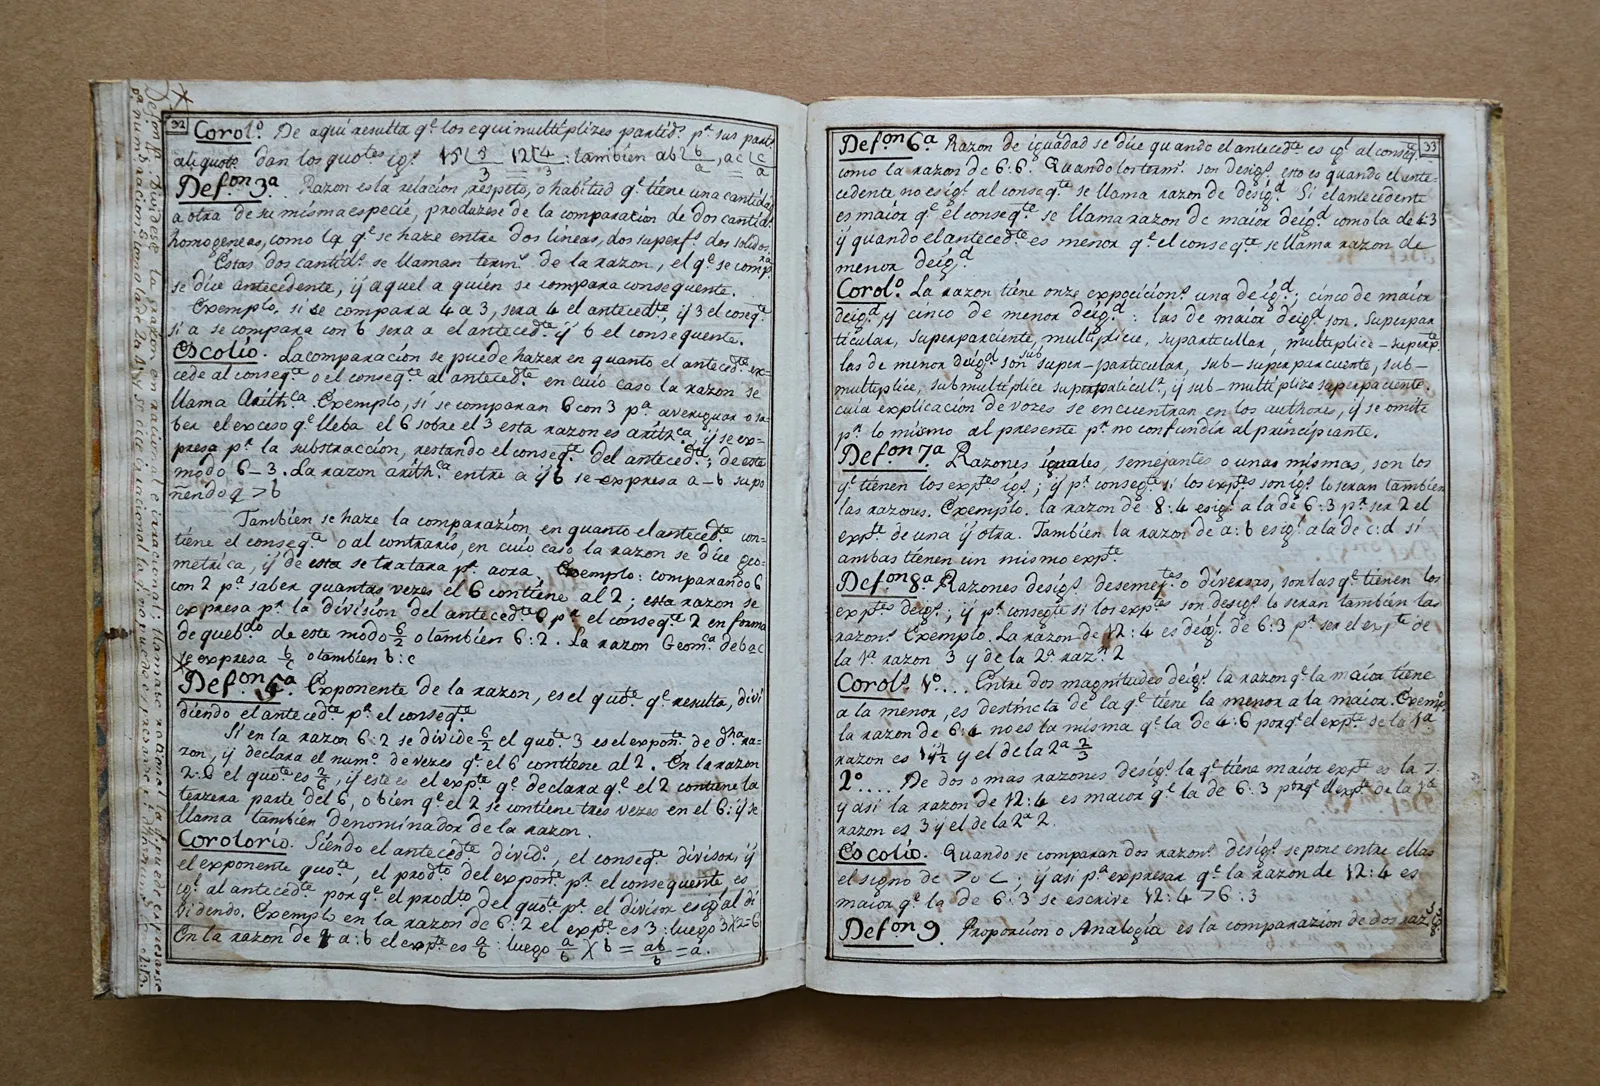 32
Corol.º De aqui resulta q.e los equimultiplizes partid.s p.r sus partes
aliquotas dan los quo.tes ig.s 15⌊5 12⌊4 : tambien ab⌊b, ac⌊c
3 = 3 a = a
Def.on 3.a Razon es la relacion, respeto, o habitud q.e tiene una cantidad
a otra de su misma especie, produzese de la comparacion de dos cantid.s
homogeneas, como la q.e se haze entre dos lineas, dos superf.s dos solidos.
Estas dos cantid.s se llaman term.s de la razon, el q.e se comp.ra
se dice antecedente, ÿ aquel a quien se compara consequente.
Exemplo. si se compara 4 a 3, sera 4 el anteced.te ÿ 3 el conseq.te
si a se compara con b sera a el anteced.te ÿ b el consequente.
Escolio. La comparacion se puede hazer en quanto el anteced.te ex-
cede al conseq.te o el conseq.te al anteced.te en cuio caso la razon se
llama Arith.ca Exemplo, si se comparan 6 con 3 p.a averiguar o sa-
ber el exceso q.e lleba el 6 sobre el 3 esta razon es arith.ca, ÿ se ex-
presa p.r la substraccion, restando el conseq.te del anteced.te; de este
modo 6-3. La razon arith.ca entre a ÿ b se expresa a-b supo
niendo a > b
Tambien se haze la comparazion en quanto el anteced.te con-
tiene el conseq.te o al contrario, en cuio caso la razon se dice geo-
metrica, ÿ de esta se tratara p.r aora. Exemplo: comparando 6
con 2 p.a saber quantas vezes el 6 contiene al 2; esta razon se
expresa p.r la division del anteced.te 6 p.r el conseq.te 2 en forma
de queb.do de este modo 6/2 o tambien 6:2. La razon Geom.ca de b a c
se expresa b/c o tambien b:c
Def.on 4.a Exponente de la razon, es el quo.te q.e resulta, divi
diendo el anteced.te p.r el conseq.te
Si en la razon 6:2 se divide 6/2 el quo.te 3 es el expon.te de d.ha ra-
zon, ÿ declara el num.º de vezes q.e el 6 contiene al 2. En la razon
2:6 el quo.te es 2/6, ÿ este es el exp.te q.e declara q.e el 2 contiene la
terzera parte del 6, o bien q.e el 2 se contiene tres vezes en el 6: ÿ se
llama tambien denominador de la razon.
Corolorio. Siendo el anteced.te divid.º, el conseq.te divisor, ÿ
el exponente quo.te, el prod.to del expon.te p.r el consequente, es
ig.l al anteced.te porq.e el prod.to del quo.te p.r el divisor es ig.l al di
bidendo. Exemplo en la razon de 6:2 el exp.te es 3: luego 3X2=6
En la razon de a:b el exp.te es a/b: luego a/b X b = ab/b = a.
33
Def.on 6.a Razon de iguadad se dice quando el anteced.te es ig.l al conseq.te
como la razon de 6:6. Quando los term.s son desig.s esto es quando el ante-
cedente no es ig.l al conseq.te se llama razon de desig.d Si el antecedente
es maior q.e el conseq.te se llama razon de maior deig.d como la de 4:3
ÿ quando el anteced.te es menor q.e el conseq.te se llama razon de
menor deig.d
Corol.º La razon tiene onze expocicion.s una de ig.d; cinco de maior
deig.d, y cinco de menor deig.d: las de maior deig.d son. Superpar
ticular, superparciente, multiplice, suparticullar, multiplice-superp.te
las de menor deig.d son sub super-particular, sub-superparcuente, sub-
multiplice, submultiplice superparticul.r, ÿ sub-multiplize superpaciente.
cuia explicacion de vozes se encuentran en los authores, ÿ se omite
p.r lo mismo al presente p.r no confundir al principiante.
Def.on 7.a Razones iguales, semejantes o unas mismas, son las
q.e tienen los exp.tes ig.s; ÿ p.r conseg.te si los exp.tes son ig.s lo seran tambien
las razones. Exemplo. la razon de 8:4 es ig.l a la de 6:3 p.r ser 2 el
exp.te de una ÿ otra. Tambien la razon de a:b es ig.l a la de c:d si
ambas tienen un mismo exp.te
Def.on 8.a Razones desig.s desemej.tes o diversas, son las q.e tienen los
exp.tes deig.s; ÿ p.r consegte si los exp.tes son desig.s lo seran tambien las
razon.s Exemplo. La razon de 12:4 es deig.l de 6:3 p.r ser el exp.te de
la 1.a razon 3 y de la 2.a raz.n 2
Corol.º 1.º.... Entre dos magnitudes deig.s la razon q.e la maior tiene
a la menor, es destincta de la q.e tiene la menor a la maior. Exemp.º
la razon de 6:4 no es la misma q.e la de 4:6 porq.e el exp.te se la 1.a
razon es 1 1/2 y el de la 2.a 2/3
2.º.... De dos o mas razones desig.s la q.e tiene maior exp.te es la >
y asi la razon de 12:4 es maior q.e la de 6:3 porq.e el exp.te de la 1.a
razon es 3 y el de la 2.a 2.
Escolio. Quando se comparan dos razon.s desig.s se pone entre ellas
el signo de > o <; ÿ asi p.a expresar q.e la razon de 12:4 es
maior q.e la de 6:3 se escrive 12:4 > 6:3
Def.on 9. Proporcion o Analogia es la comparazion de dos raz.s